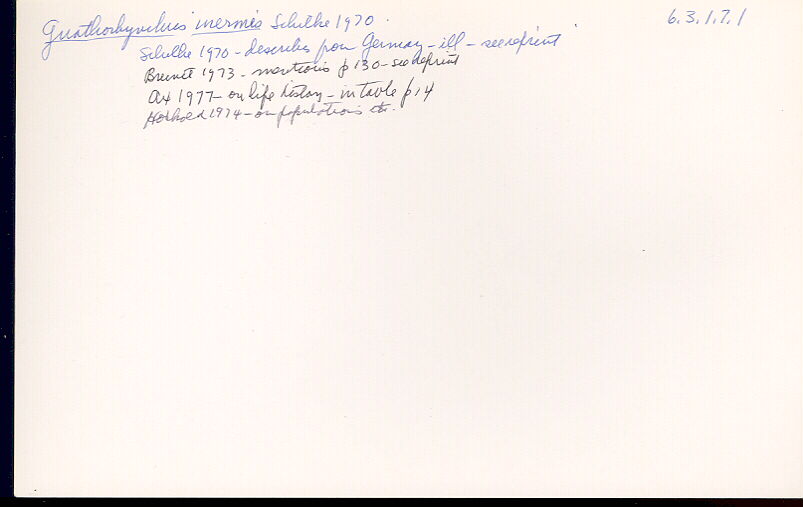 Gnathorhynchus inermis Schilke 1970. 6.3.1.7.1
Schilke 1970 - describes from Germany - ill - see reprint
Brunet 1973 - mentions p 130 - see reprint
Ax 1977 - on life history - in table p 14
1974 - on populations etc.